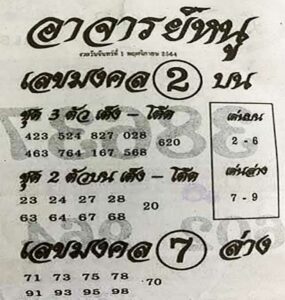 อาจารย์หนู
งวดวันจันทร์ที่ 1 พฤศจิกายน 2564
เลขมงคล 2 บน
ชุด 3 ตัว เต็ง - โต๊ด
423 524 827 028
620
463 764 167 568
เด่นบน
2 - 6
ชุด 2 ตัวบน เต็ง - โต๊ด
23 24 27 28
20
63 64 67 68
เด่นล่าง
7 - 9
เลขมงคล 7 ล่าง
71 73 75 78
70
91 93 95 98